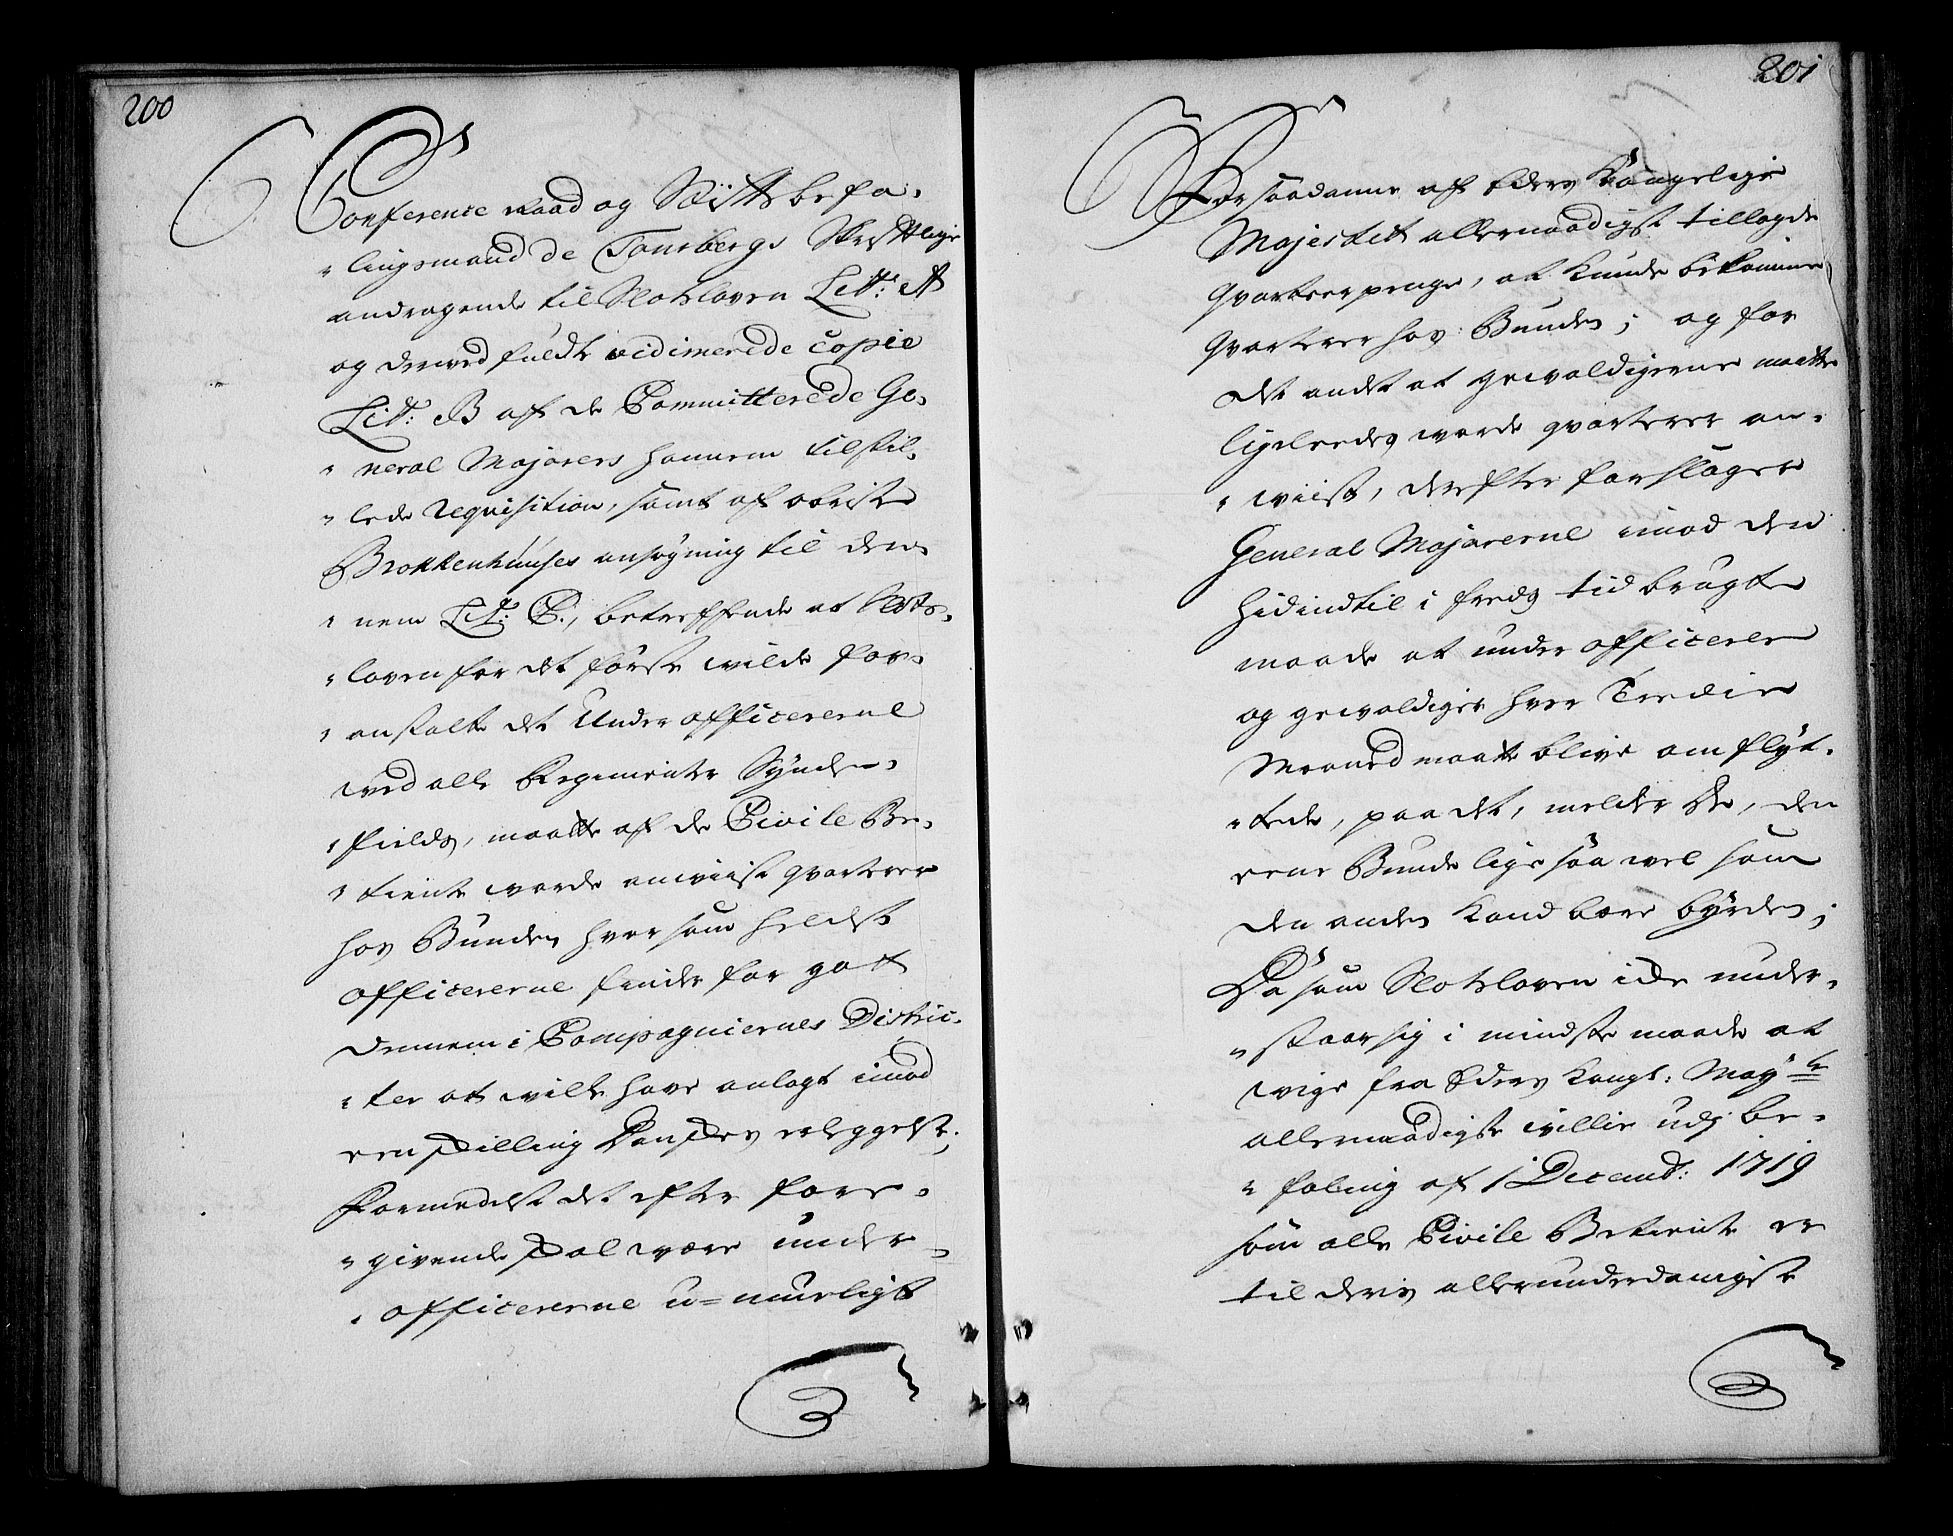 200
Conference Raad og Stiftsbefa-
lingsmand de Tonsbergs Skrifftlige
andragende til Slotsloven Litt: A
og derved fuldte vidimerede Copie
Litt: B af de Committerede Ge-
neral Majorers hannem tilstil-
lede Requisition, samt af obriste
Brokkenhuuses ansøgning til den-
nem Litt: C., betreffende at Slots-
loven for det første wilde for-
anstalte det Under officererne
wed alle Regimenter Synden-
fields, maatte af de Civile Be-
tiente worde anwiist qvarterer
hos Bunden hvor som heldst
officererne finde for got
dennem i Compagniernes Distric-
ter at wille have anlagt imod
een skilling Danskes erleggelse;
Formedelst det efter fore-
givende skal være under
officererne u-mueligt
201
For saadanne af Eders Kongelige
Majestet allernaadigst tillagde
qvarteer penge, at kunde bekomme
qvarterer hos Bunden; og for
det andet at gewaldigerne maatte
ligeleedes worde qvarterer an-
wiist, derefter forslager
General Majorerne imod den
hidindtil i freds tid brugte
maade at under officerer
og gewaldiger hver Tredie
Maaned maatte blive om flyt-
tede, paa det, melder De, den
eene Bunde lige saa wel som
den anden kand bære byrden;
Da som Slotsloven icke under-
staar sig i mindste maade at
wige fra Eders Kongl: May:ts
allernaadigste willie udj be-
faling af 1 Decemb: 1719
som alle Civile Betiente er
til deris allerunderdanigste